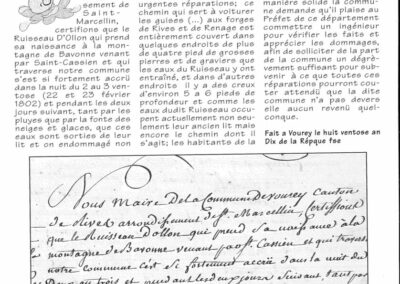 ssement de
Saint-
Marcellin,
certifions que le
Ruisseau D'Ollon qui prend
sa naissance à la mon-
tagne de Bavonne venant
par Saint-Cassien et qui
traverse notre commune
s'est si fortement accrû
dans la nuit du 2 au 3 ven-
tose (22 et 23 février
1802) et pendant les deux
jours suivant, tant par les
pluyes que par la fonte des
neiges et glaces, que ces
eaux sont sorties de leur
lit et on endommagé non
urgentes réparations; ce
chemin qui sert à voiturer
les guises (...) aux forges
de Rives et de Renage est
entièrement couvert dans
quelques endroits de plus
de quatre pied de grosses
pierres et de graviers que
les eaux du Ruisseau y ont
entraîné, et dans d'autres
endroits il y a des creux
d'environ 5 a 6 pieds de
profondeur et comme les
eaux dudit Ruisseau occu-
pent actuellement non seu-
lement leur ancien lit mais
encore le chemin dont il
s'agit; les habitants de la
manière solide la commu-
ner demande qu'il plaise au
Préfet de ce département
commettre un ingénieur
pour vérifier les faits et
apprécier les dommages,
afin de solliciter de la part
de la commune un dégrè-
vement suffisant pour sub-
venir à ce que toutes ces
réparations pourront cou-
ter attendu que la dite
commune n'a pas devers
elle aucun revenu quel-
conque.
Fait a Vourey le huit ventose an
Dix de la Répque fse
Nous Maire De la Commune De vourey Canton
de Rives arrondissement de St. Marcellin, Certiffions
que le Ruisseau D'ollon qui prend sa naissance à la
montagne de Bavonne venant par St Cassien et qui traverse
notre Commune s'est si fortement accrû dans la nuit du
Deux au trois et pendant les deux jours suivant tant par